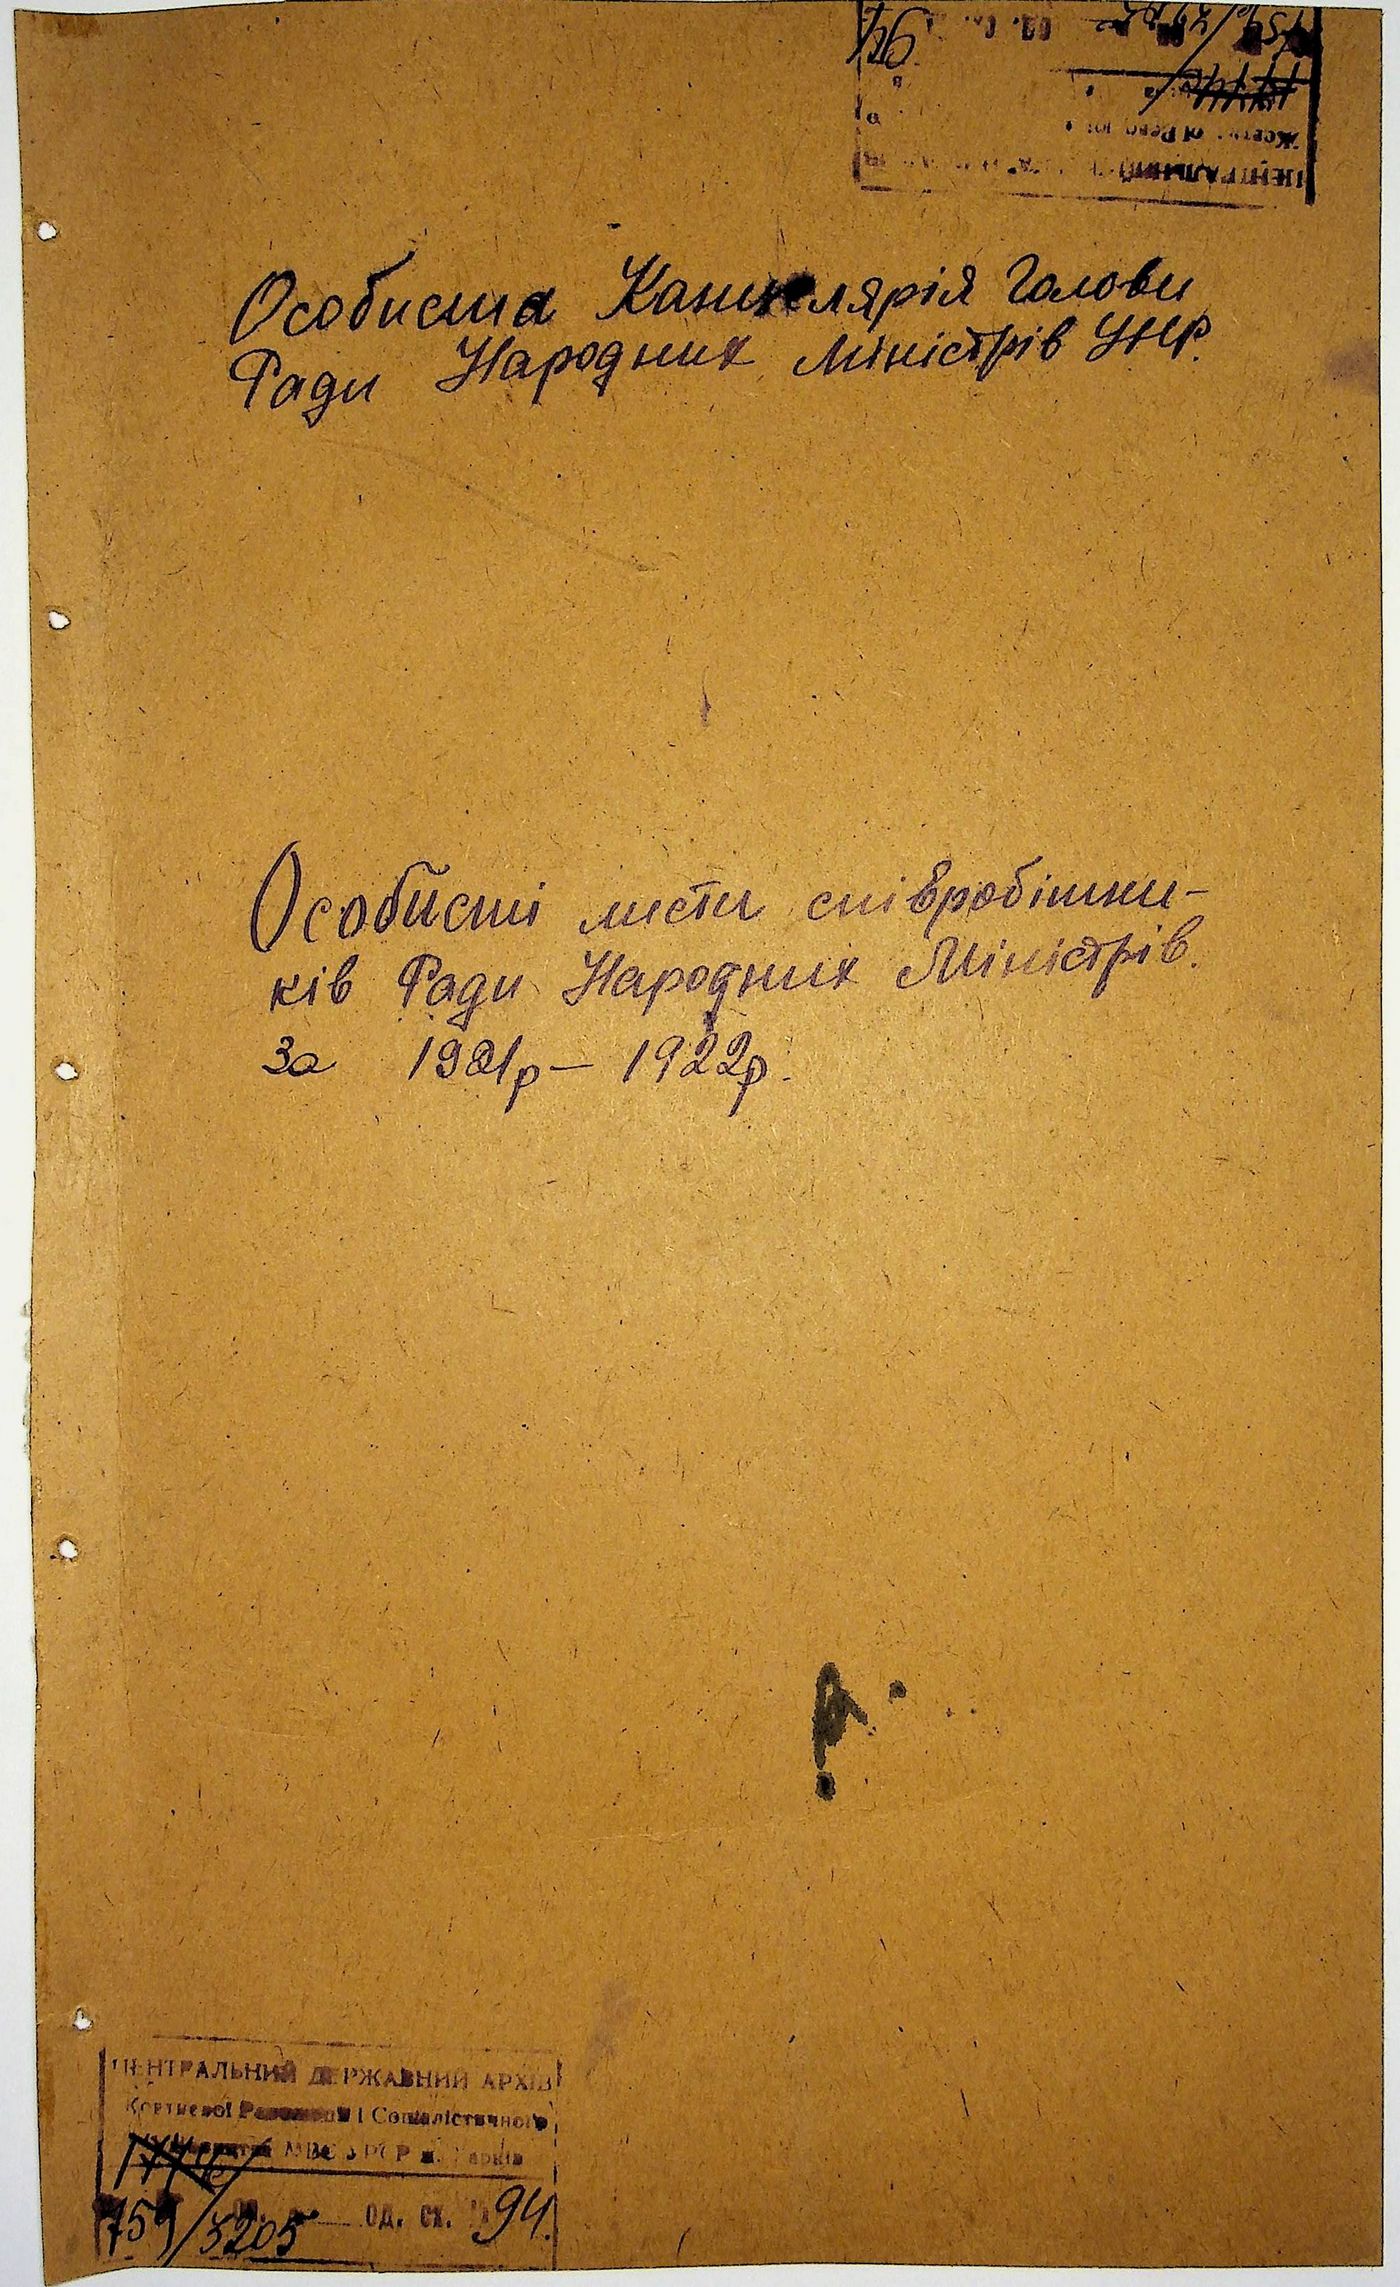 Особиста Канцелярія Голови
Ради Народних Міністрів УНР.
Особисті листи співробітни-
ків Ради Народних Міністрів.
за 1921р – 1922р.
ЦЕНТРАЛЬНИЙ ДЕРЖАВНИЙ АРХІВ
Жовтневої Революції і Соціалістичного
МВС УРСР м. Харків
759/3205 од. сх. 94.